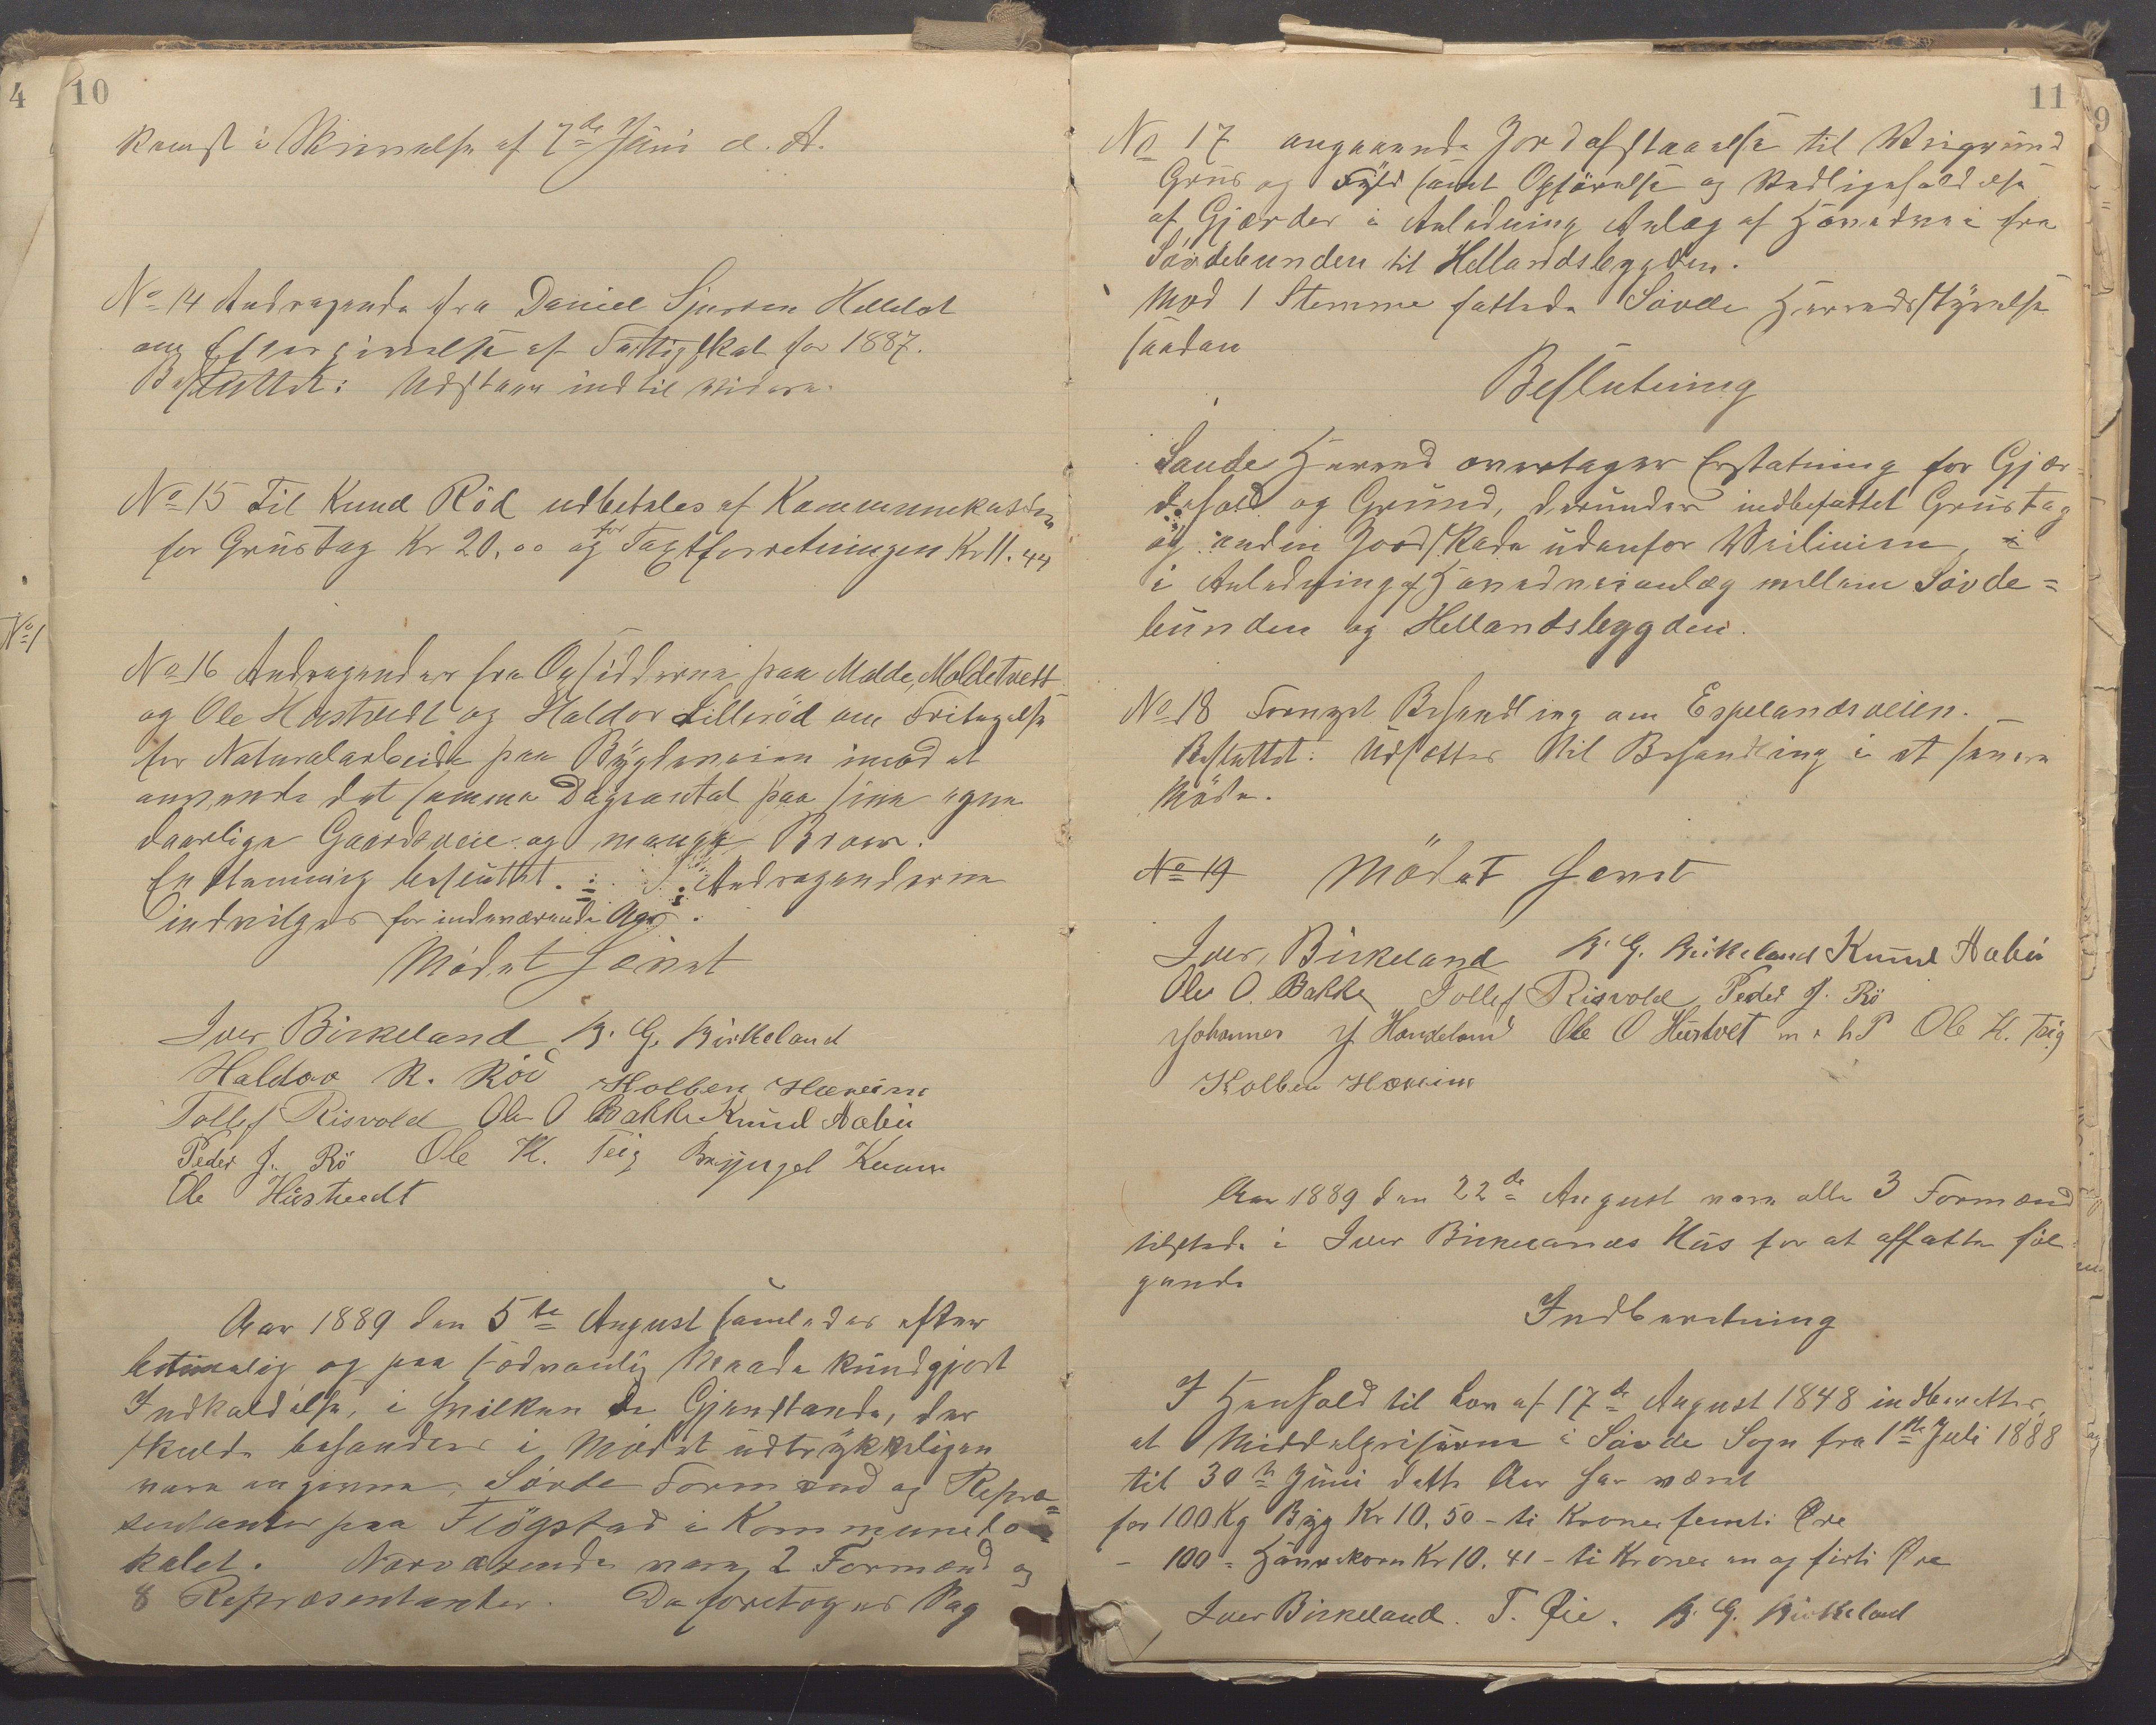 4
10
komst i Skrivelse af 7de Juni d. A.
No 14 Andragende fra Daniel Sjursen Helldal
om Eftergivelse af Fattigskat for 1887.
Besluttet: Udstaar indtil videre.
No 15 Til Knud Röd udbetales af Kommunekassen
for Grustag Kr 20,00 og for Taxtforretningen Kr 11.44
No 1
No 16 Andragender fra Opsidderne paa Molde, Moldetvedt
og Ole Hustvedt og Haldor Lilleröd om Fritagelse
for Naturalarbeide paa Bygdeveien imod at
anvende det samme Dagsantal paa sine egne
daarlige Gaardsveie og mange Broer.
Enstemmig besluttet. : Andragenderne
indvilges for indeværende Aar.
Mödet hævet
Iver Birkeland B. G. Birkeland
Haldor K. Röd Kolben Hæreim
Tollef Risvold Ole O Bakke Knud Aabu
Peder J. Rö Ole K. Teig Bryngel Kvam
Ole Hustvedt
Aar 1889 den 5te August samledes efter
betimelig og paa sedvanlig Maade kundgjort
Indkaldelse, i hvilken de Gjenstande, der
skulde behandles i Mödet udtrykkeligen
vare angivne, Sövde Formænd og Repræ=
sentanter paa Flögstad i Kommunelo=
kalet. Nærværende vare 2 Formænd og
8 Repræsentanter. Da foretoges Sag
11
9
No 17 angaaende Jordafstaaelse til Veigrund
Grus og Fyld samt Opförelse og Vedligeholdelse
af Gjærder i Anledning Anlæg af Hovedvei fra
Sövdebunden til Hellandsbygden.
Mod 1 Stemme fattede Sövde Herredsstyrelse
saadan
Beslutning
Saude Herred overtager Erstatning for Gjær-
dehold og Grund, derunder indbefattet Grustag
og anden Jordskade udenfor Veilinien,
i Anledning af Hovedveianlæg mellem Sövde=
bunden og Hellandsbygden.
No 18 Fornyet Behandling om Espelandsveien.
Besluttet: Udsættes til Behandling i et senere
Möde.
No 19 Mödet hævet
Iver Birkeland B. G. Birkeland Knud Aabu
Ole O. Bakke Tollef Risvold Peder J. Rö
Johannes J Handeland Ole O Hustvet m. h P Ole K. Teig
Kolben Hæreim
Aar 1889 den 22de August vare alle 3 Formænd
tilstede i Iver Birkelands Hus for at affatte föl
gende
Indberetning
I Henhold til Lov af 17de August 1848 indberettes,
at Middelpriserne i Sövde Sogn fra 1ste Juli 1888
til 30te Juni dette Aar har været
for 100 Kg Byg Kr 10,50 - ti Kroner femti Öre
- 100 = Havrekorn Kr 10.41 - ti Kroner en og firti Öre
Iver Birkeland. T. Öie. B. G. Birkeland